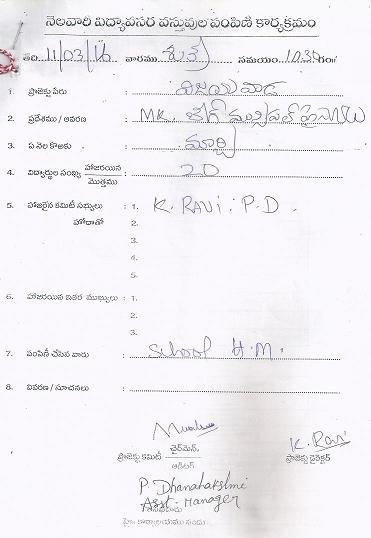 నెలవారీ విద్యావసర వస్తువుల పంపిణీ కార్యక్రమం
తేది 11/03/16 వారము శుక్ర సమయం 10.30 గం॥
1. ప్రాజెక్టు పేరు : విజయవాడ
2. ప్రదేశము / ఆవరణ : MK. బేగ్ మున్సిపల్ హైస్కూలు
3. ఏ నెల కొఱకు : మార్చి
4. విద్యార్థుల సంఖ్య హాజరయిన / మొత్తము : 20
5. హాజరైన కమిటీ సభ్యులు : 1. K. RAVI. P.D.
హోదాతో 2.
3.
4.
5.
6. హాజరయిన ఇతర ముఖ్యులు : 1.
2.
3.
7. పంపిణీ చేసిన వారు : School H.M.
8. వివరణ / సూచనలు :
K. Ravi
ప్రాజెక్టు కమిటీ ఛైర్మెన్, ప్రాజెక్టు డైరెక్టర్
ఆడిటర్
P. Dhanalakshmi
Asst. Manager